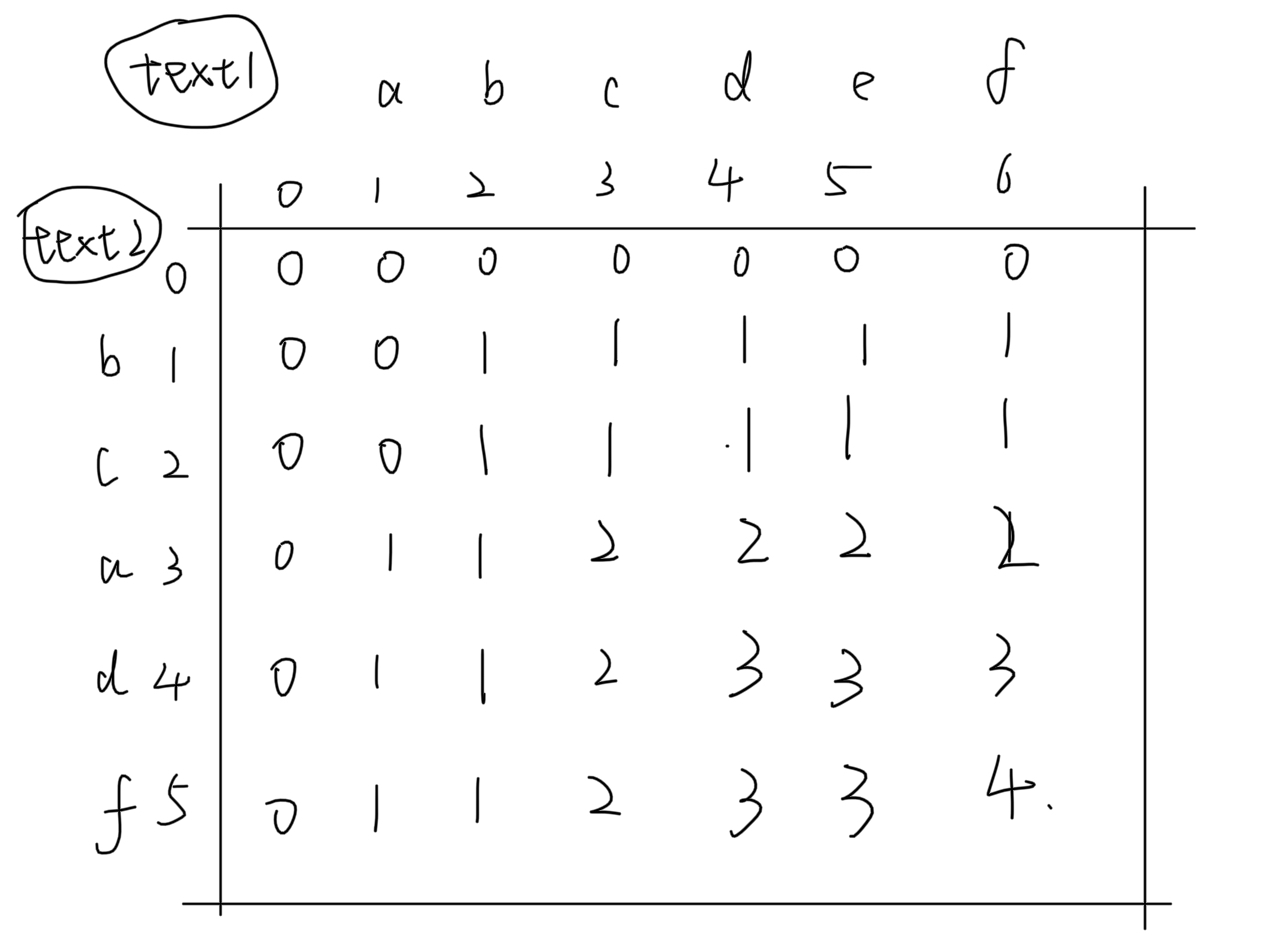 text1 a b c d e f
0 1 2 3 4 5 6
text2
0 0 0 0 0 0 0 0
b 1 0 0 1 1 1 1 1
c 2 0 0 1 1 1 1 1
a 3 0 1 1 2 2 2 2
d 4 0 1 1 2 3 3 3
f 5 0 1 1 2 3 3 4.